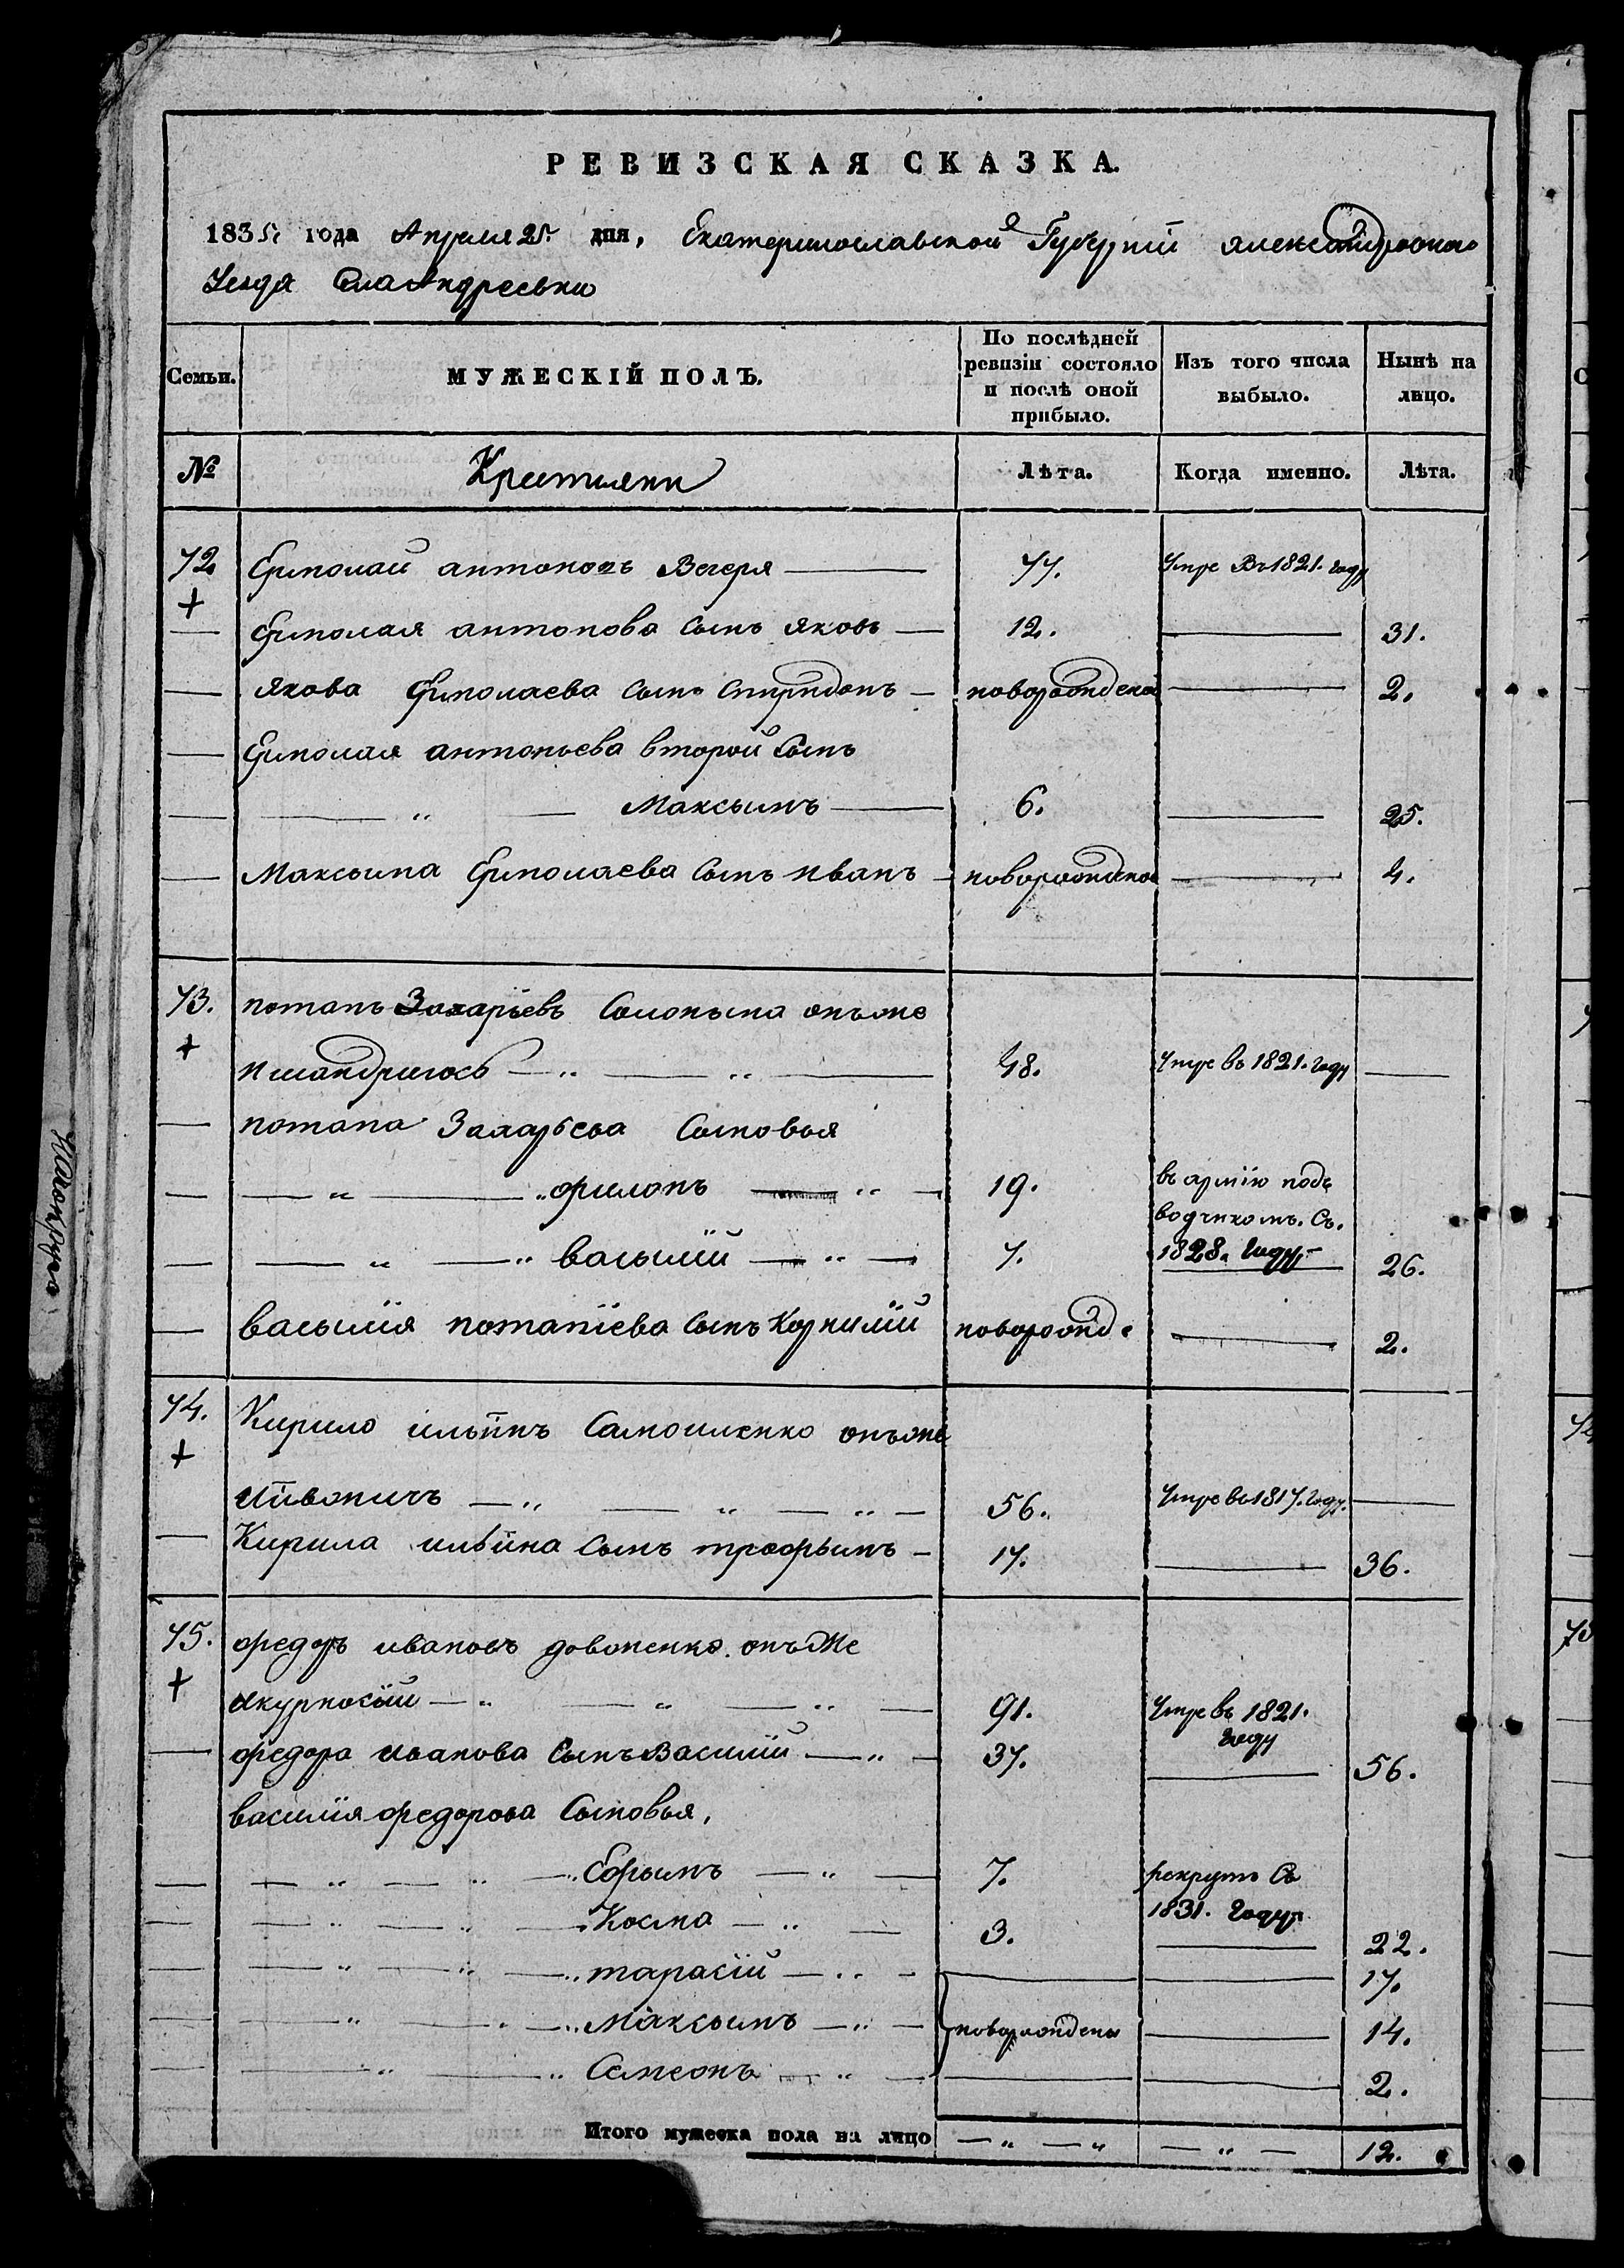 РЕВИЗСКАЯ СКАЗКА.
1835 года Апреля 25. дня, Екатеринославской Губерніи Александровского
Уезда Села Андреевки
Семьи.
МУЖЕСКІЙ ПОЛЪ.
По послѣдней ревизіи состояло и послѣ оной прибыло.
Изъ того числа выбыло.
Нынѣ на лицо.
№ Крестьяни Лѣта. Когда именно. Лѣта.
72 Ермолай антоновъ Вечеря 77. Умре Въ 1821. году
Ермолая антонова сынъ яковъ 12. 31.
якова Ермолаева сынъ спиридонъ новорожденой 2.
Ермолая антоньева второй сынъ
Максымъ 6. 25.
Максыма Ермолаева сынъ иванъ новорожденой 4.
73. потапъ Захаріевъ онъже
48. Умре въ 1821. году
потапа Захарьева Сыновья
филонъ 19. въ армію подъ
водчикомъ. Съ.
васылій 7. 1828. году 26.
васылія потапіева сынъ Корнилій новорожде 2.
74. Кирило ильинъ Самоиленко онъже
56. Умре въ 1817. году.
Кирила ильина сынъ трофымъ 17. 36.
75. федоръ ивановъ довоненко. онъже
якурносій 91. Умре въ 1821.
году
федора иванова Сынъ Василій 37. 56.
василія федорова Сыновья,
Ефрымъ 7. рекрутъ Съ
1831. году
Косма 3. 22.
тарасій 17.
Максымъ новорождены 14.
Семеонъ 2.
Итого мужеска пола на лицо 12.